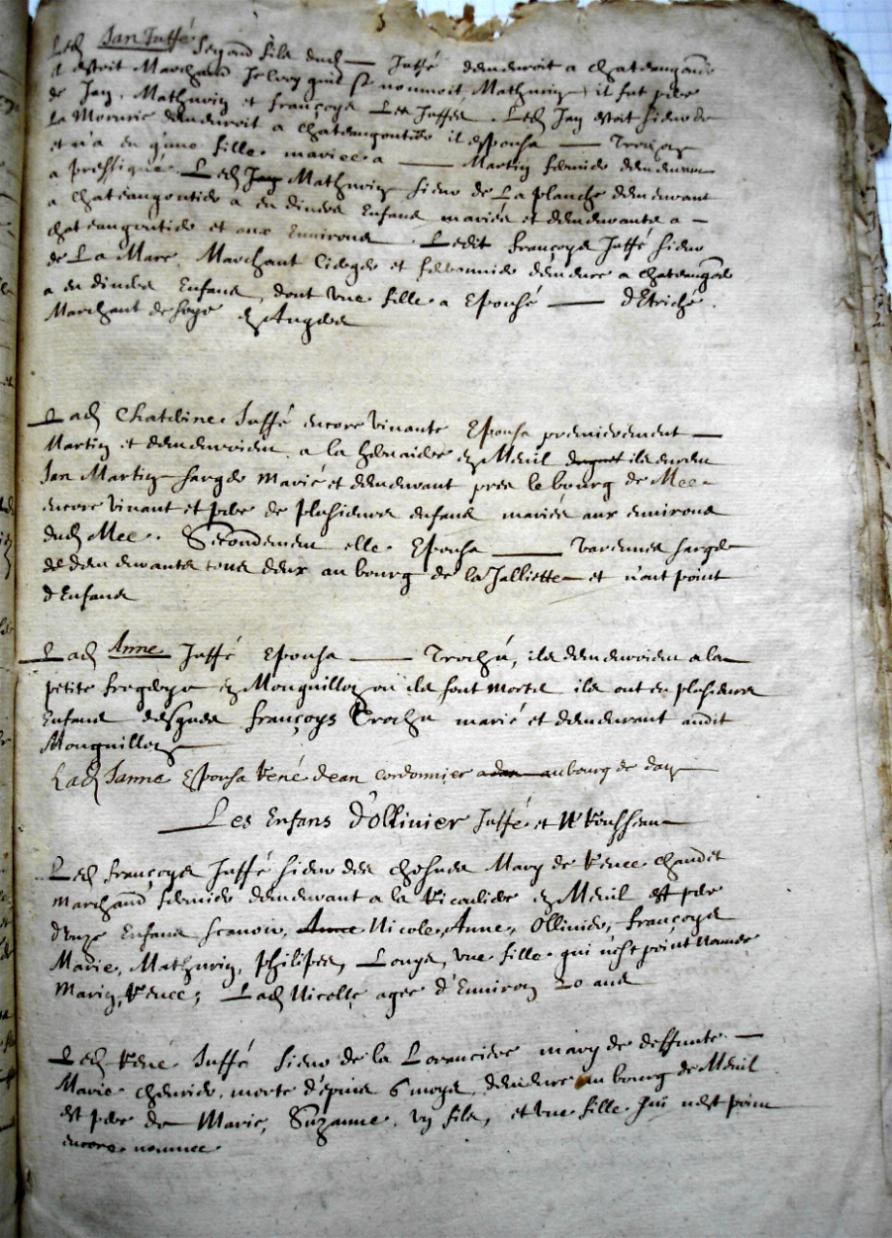 Led Jan Juffé segond fils dud — Juffé demeuroit a chateaugont
Il estoit Marchand et se nommoit Mathurin, il fut pere
de Jan, Mathurin et françoys Les Juffés. Led Jan estoit sieur de
la Morinie demeuroit a chateaugontier il espousa —
et n'a eu q'une fille mariee a — Martin fermier demeurant
a Led Jan Mathurin sieur de La planche demeurant
a chateaugontier a eu divers Enfans mariés et demeurants a –
chateaugontier et aux Environs. Ledit françoys Juffé sieur
de La Mare, Marchant Ciergier et fermier demeure a chateaugon
a eu divers Enfans, dont une fille a Epousé — d'Etriché
Marchant de soye en Angers
Lad Chaterine Juffé encore vivante Epousa premierement —
Martin et demeuroient a la en Meuil duquel ils eurent
Jan Martin sarger marié et demeurant pres le bourg de Mée
encore vivant et pere de plusieurs enfans mariés aux environs
dud Mée. Secondement elle Epousa — Varennes sarger
demeurants tous deux au bourg de la Jalliette et n'ont point
d'Enfans
Lad Anne Juffé Epousa — Trochu, ils demeuroient a la
petite en Monguillon ou ils sont morts ils ont eu plusieurs
Enfans desquels françoys Trochu marié et demeurant audit
Monguillon
Lad Janne Espousa René Jean cordonnier au bourg de daon
Les Enfans d'Ollivier Juffé et R Rousseau
Led françoys Juffé sieur des chesnes Mary de Renee
marchand fermier demeurant a la en Meuil est pere
d'unze Enfans scavoir, Anne Nicole, Anne, Ollivier, françoys
Marie, Mathurin, Philipes, Louys, une fille qui n'est point nommee
Marin, Renee; Lad Nicolle agee d'Environ 20 ans
Led René Juffé sieur de la mary de deffunte —
Marie morte depuis 6 moys, demeure au bourg de Meuil
est pere de Marie, Suzanne, un fils, et une fille qui n'est point
encore nommee